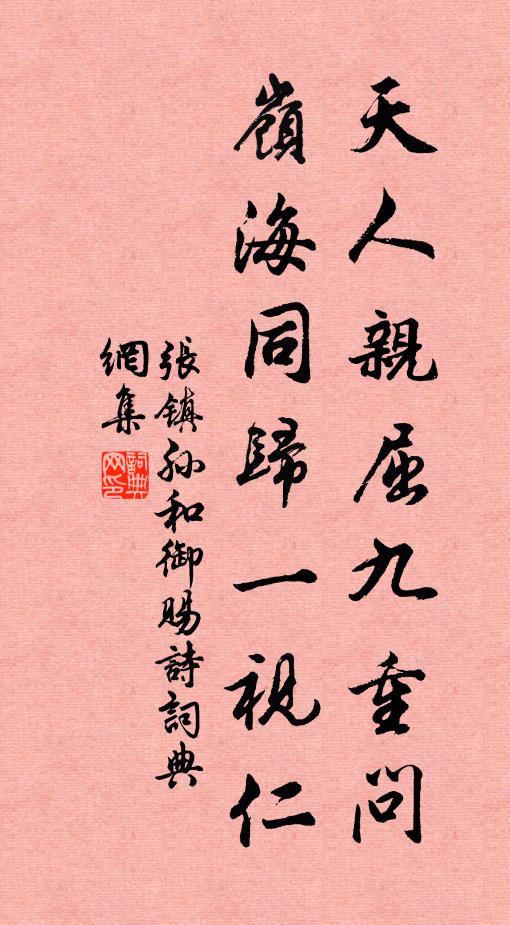 天人親屈九重問
嶺海同歸一視仁
張鎮孙和御賜詩詞典
網集
詞典
网印